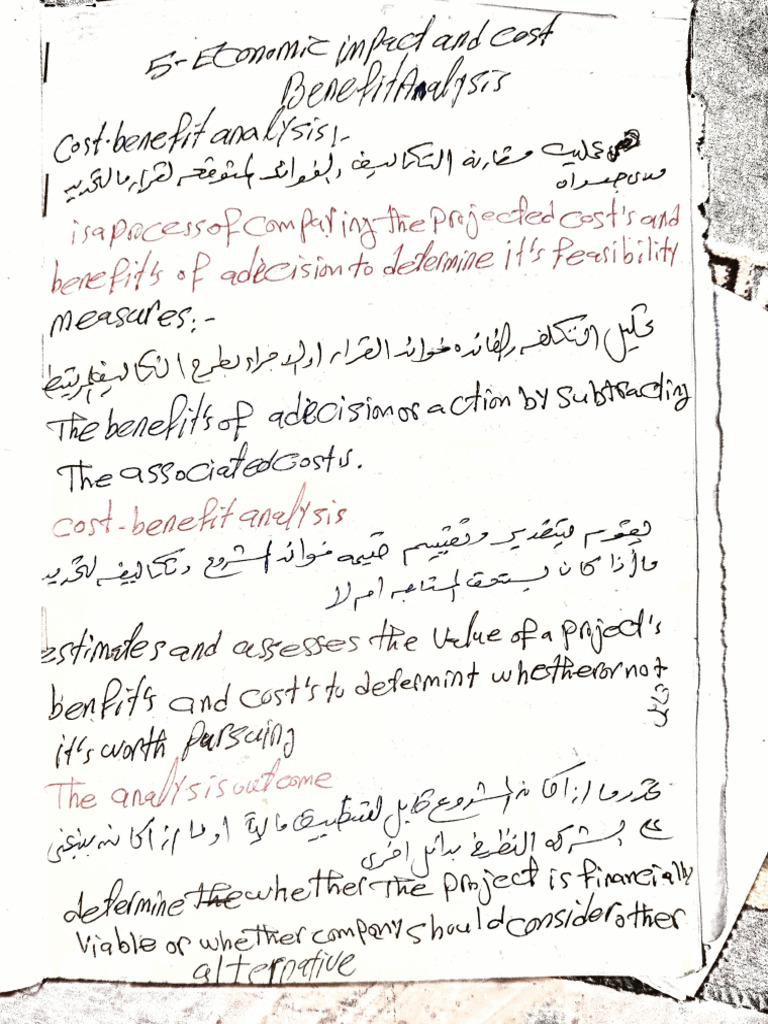 5- Economic impact and cost
Benefit Analysis
Cost-benefit analysis:-
عمليه مقارنه التكاليف والفوائد المتوقعه لقرار ما لتحديد
مدى جدواه
is a process of comparing the projected cost's and
benefit's of a decision to determine it's feasibility
measures:-
تحليل التكلفه والفائده فوائد القرار او الاجراء بطرح التكاليف المرتبطه
The benefit's of a decision or action by subtracting
The associated costs.
cost-benefit analysis
يقوم بتقدير وتقييم قيمه فوائد المشروع وتكاليفه لتحديد
ما اذا كان يستحق المتابعه ام لا
estimates and assesses the value of a project's
benfit's and cost's to determint whether or not
it's worth pursuing
The analysis outcome
تحدد ما اذا كان المشروع قابل للتطبيق ماليا او ما اذا كان ينبغي
على الشركه النظر في بدائل اخرى
determine the whether The project is financially
viable or whether company should consider other
alternative